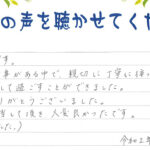 の声を聴かせてくだ
です。
事がある中で、親切に丁寧に
して過ごすことができました。
りがとうございました。
当して頂き大変良かったです。
した。)
令和